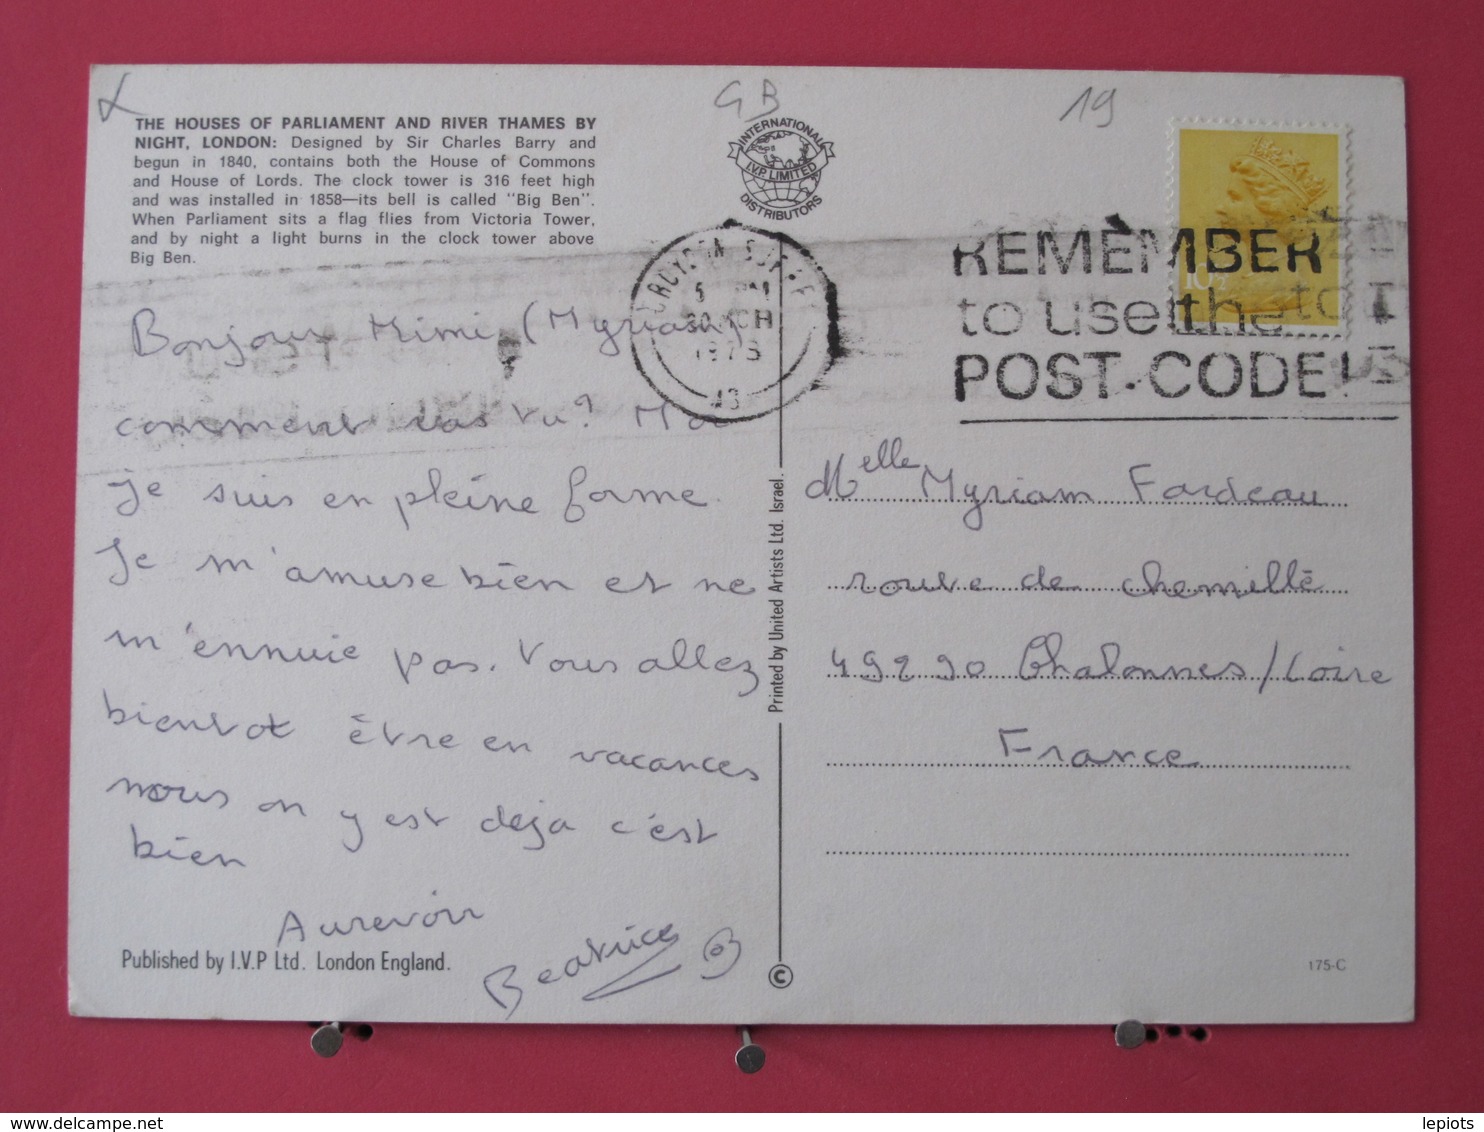 GB
19
THE HOUSES OF PARLIAMENT AND RIVER THAMES BY
NIGHT, LONDON: Designed by Sir Charles Barry and
begun in 1840, contains both the House of Commons
and House of Lords. The clock tower is 316 feet high
and was installed in 1858—its bell is called "Big Ben".
When Parliament sits a flag flies from Victoria Tower,
and by night a light burns in the clock tower above
Big Ben.
INTERNATIONAL
I.V.P. LIMITED
DISTRIBUTORS
CROYDON SURREY
5 PM
30 MCH
REMEMBER
to use the
POST·CODE!
10½
Bonjour Mimi (Myriam)
comment vas tu? Moi
je suis en pleine forme.
Je m'amuse bien et ne
m'ennuie pas. Vous allez
bientot être en vacances
nous on y est deja c'est
bien
Aurevoir
Beatrice
Melle Myriam Fardeau
route de chemillé
49290 Chalonnes/Loire
France
Printed by United Artists Ltd. Israel.
©
Published by I.V.P Ltd. London England.
175-C
www.delcampe.net
lepiots